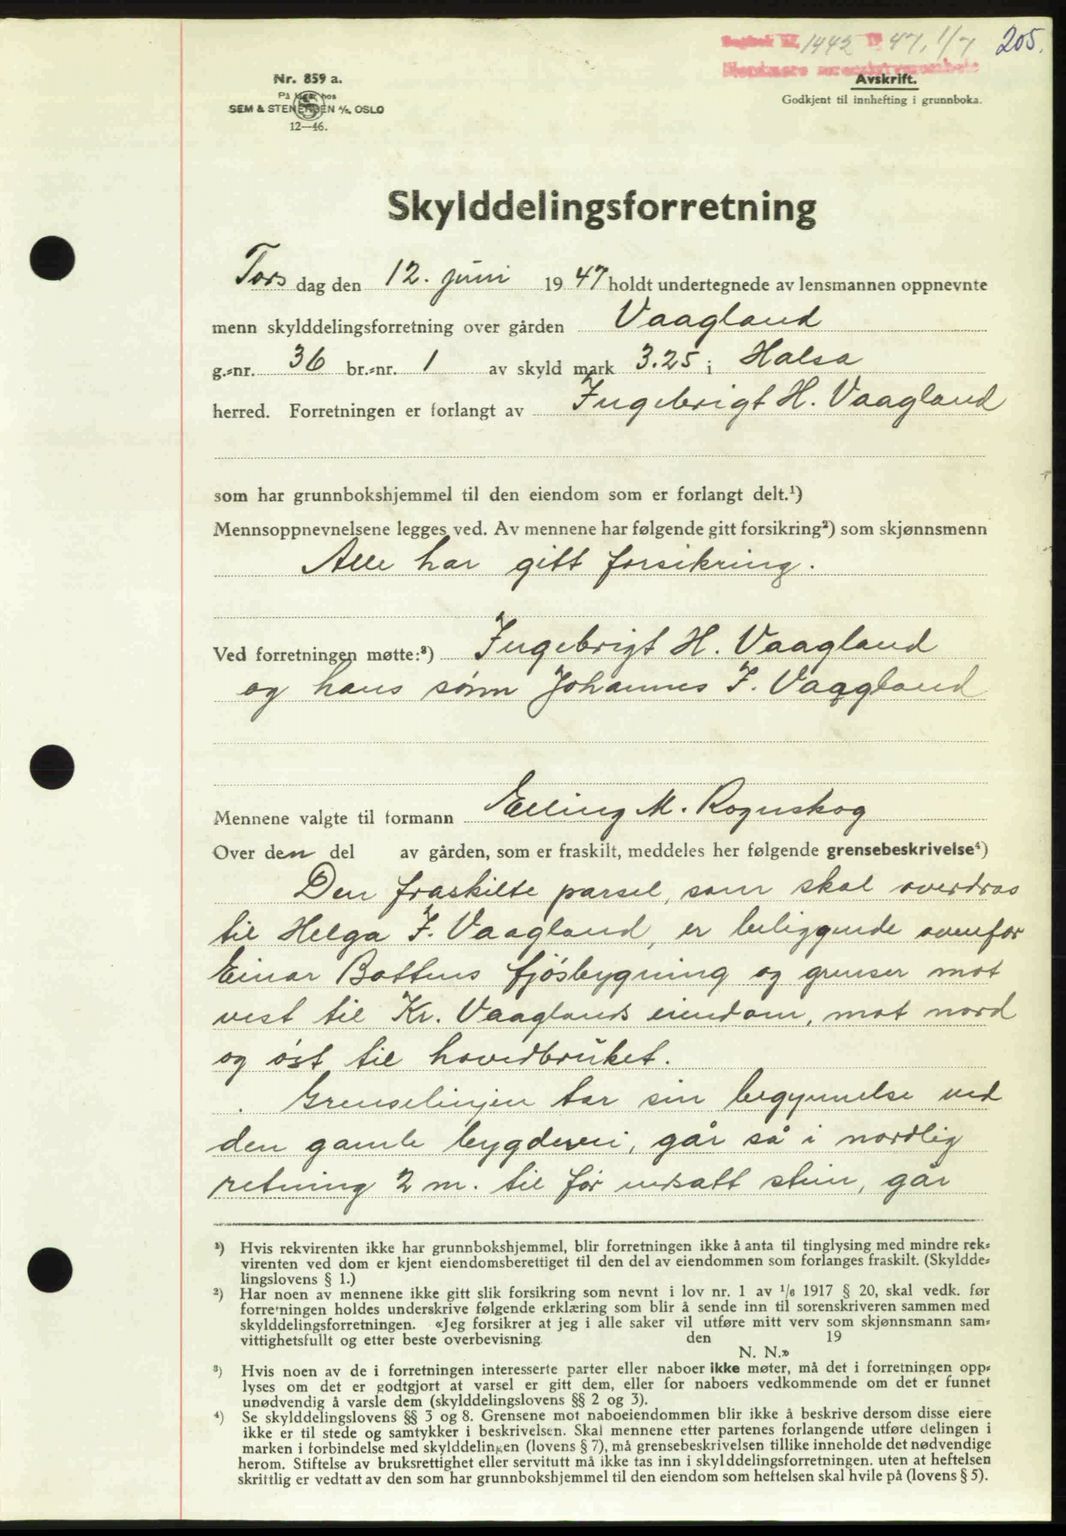 Dagbok nr. 1442 19 47, 1/7 205.
Nordmøre sorenskriverembete
Nr. 859 a.
På lager hos
SEM & STENERSEN A/S, OSLO
12—46.
Avskrift.
Godkjent til innhefting i grunnboka.
Skylddelingsforretning
Tors dag den 12. juni 19 47 holdt undertegnede av lensmannen oppnevnte
menn skylddelingsforretning over gården Vaagland
g.-nr. 36 br.-nr. 1 av skyld mark 3.25 i Halsa
herred. Forretningen er forlangt av Ingebrigt H. Vaagland
som har grunnbokshjemmel til den eiendom som er forlangt delt.¹)
Mennsoppnevnelsene legges ved. Av mennene har følgende gitt forsikring²) som skjønnsmenn
Alle har gitt forsikring.
Ved forretningen møtte:³) Ingebrigt H. Vaagland
og hans sønn Johannes I. Vaagland
Mennene valgte til formann Elling M. Rognskog
Over den del av gården, som er fraskilt, meddeles her følgende grensebeskrivelse⁴)
Den fraskilte parsel, som skal overdras
til Helga I. Vaagland, er beliggende ovenfor
Einar Bottens fjøsbygning og grenser mot
vest til Kr. Vaaglands eiendom, mot nord
og øst til hovedbruket.
Grenselinjen tar sin begynnelse ved
den gamle bygdevei, går så i nordlig
retning 2 m. til før nedsatt stein, går
¹) Hvis rekvirenten ikke har grunnbokshjemmel, blir forretningen ikke å anta til tinglysing med mindre rek-
virenten ved dom er kjent eiendomsberettiget til den del av eiendommen som forlanges fraskilt. (Skyldde-
lingslovens § 1.)
²) Har noen av mennene ikke gitt slik forsikring som nevnt i lov nr. 1 av 1/6 1917 § 20, skal vedk. før
forretningen holdes underskrive følgende erklæring som blir å sende inn til sorenskriveren sammen med
skylddelingsforretningen. «Jeg forsikrer at jeg i alle saker vil utføre mitt verv som skjønnsmann sam-
vittighetsfullt og etter beste overbevisning den 19
N. N.»
³) Hvis noen av de i forretningen interesserte parter eller naboer ikke møter, må det i forretningen opp-
lyses om det er godtgjort at varsel er gitt dem, eller for naboers vedkommende om det er funnet
unødvendig å varsle dem (skylddelingslovens §§ 2 og 3).
⁴) Se skylddelingslovens §§ 3 og 8. Grensene mot naboeiendommen blir ikke å beskrive dersom disse eiere
ikke er til stede og samtykker i beskrivelsen. Skal mennene etter partenes forlangende utføre delingen i
marken i forbindelse med skylddelingen (lovens § 7), må grensebeskrivelsen tillike inneholde det nødvendige
herom. Stiftelse av bruksrettighet eller servitutt må ikke tas inn i skylddelingsforretningen. uten at heftelsen
skriftlig er vedtatt av den som har grunnbokshjemmel til den eiendom som heftelsen skal hvile på (lovens § 5).